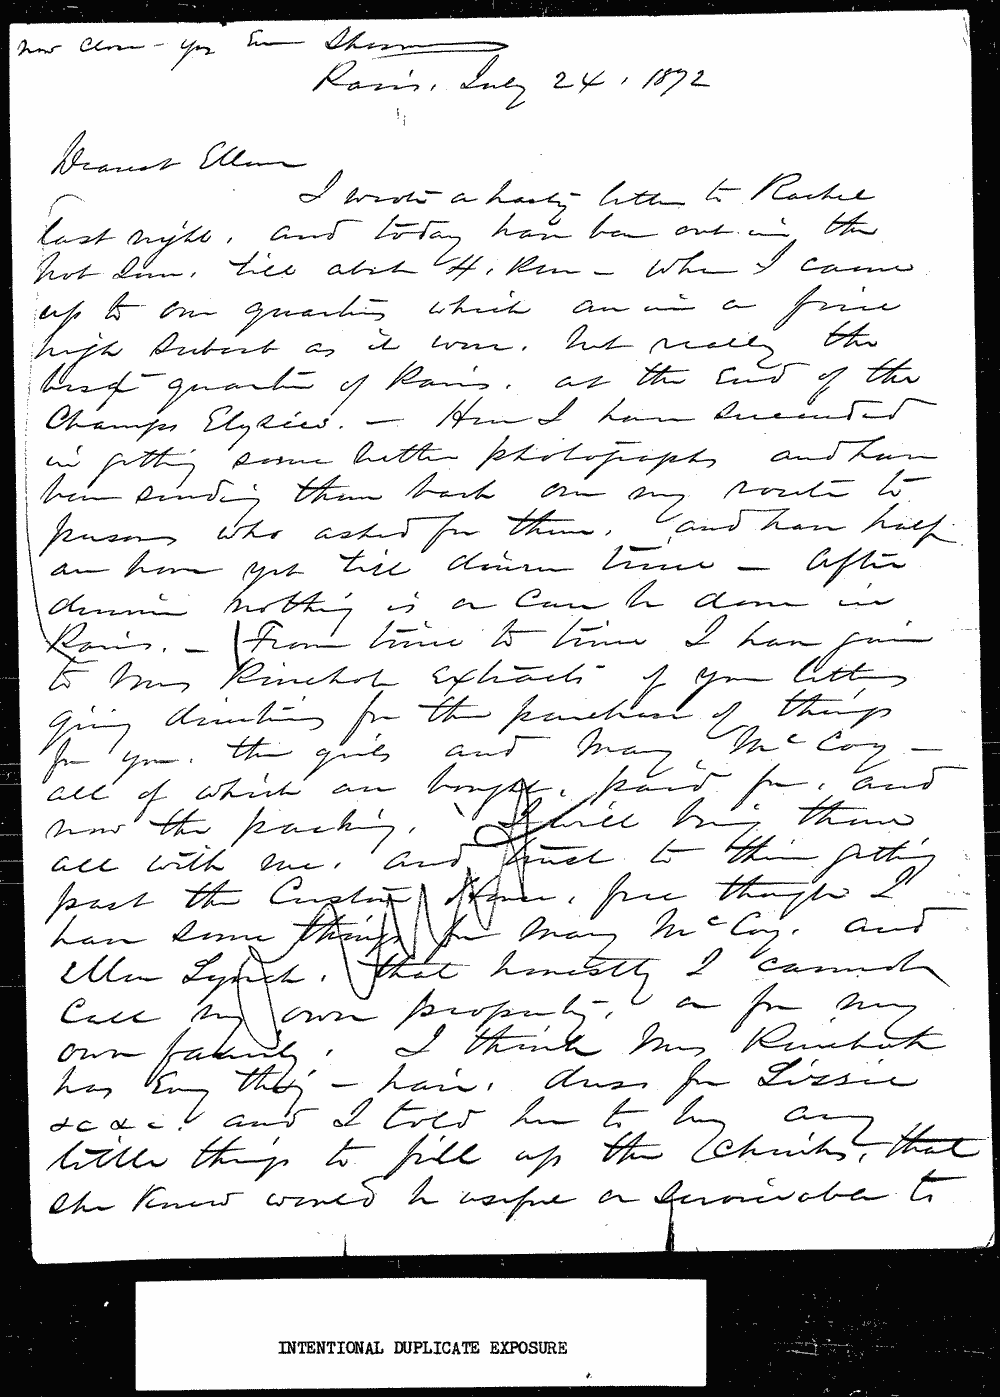 now close - yrs Ever Sherman
Paris, July 24, 1872
Dearest Ellen
I wrote a hasty letter to Rachel
last night, and today have been out in the
hot Sun, till about 4. P.m - when I came
up to our quarters which are in a fine
high suburb as it were, but really the
best quarter of Paris, at the End of the
Champs Elysees. - Here I have succeeded
in getting some better photographs and have
been sending them back on my route to
persons who asked for them, and have half
an hour yet till dinner time - After
dinner nothing is or can be done in
Paris. - From time to time I have given
to Mrs Rinehart Extracts of your letters
giving directions for the purchase of things
for you, the girls and Mary McCoy -
all of which are bought, paid for, and
now the packing. I will bring them
all with me, and trust to their getting
past the Custom House, free though I
have some things for Mary McCoy, and
Ellen Lynch, that honestly I cannot
Call my own property, or for my
own family. I think Mrs Rinehart
has Every thing - hair, dress for Lizzie
&c &c. and I told her to buy any
little things to fill up the chinks, that
she knew would be useful or serviceable to
INTENTIONAL DUPLICATE EXPOSURE